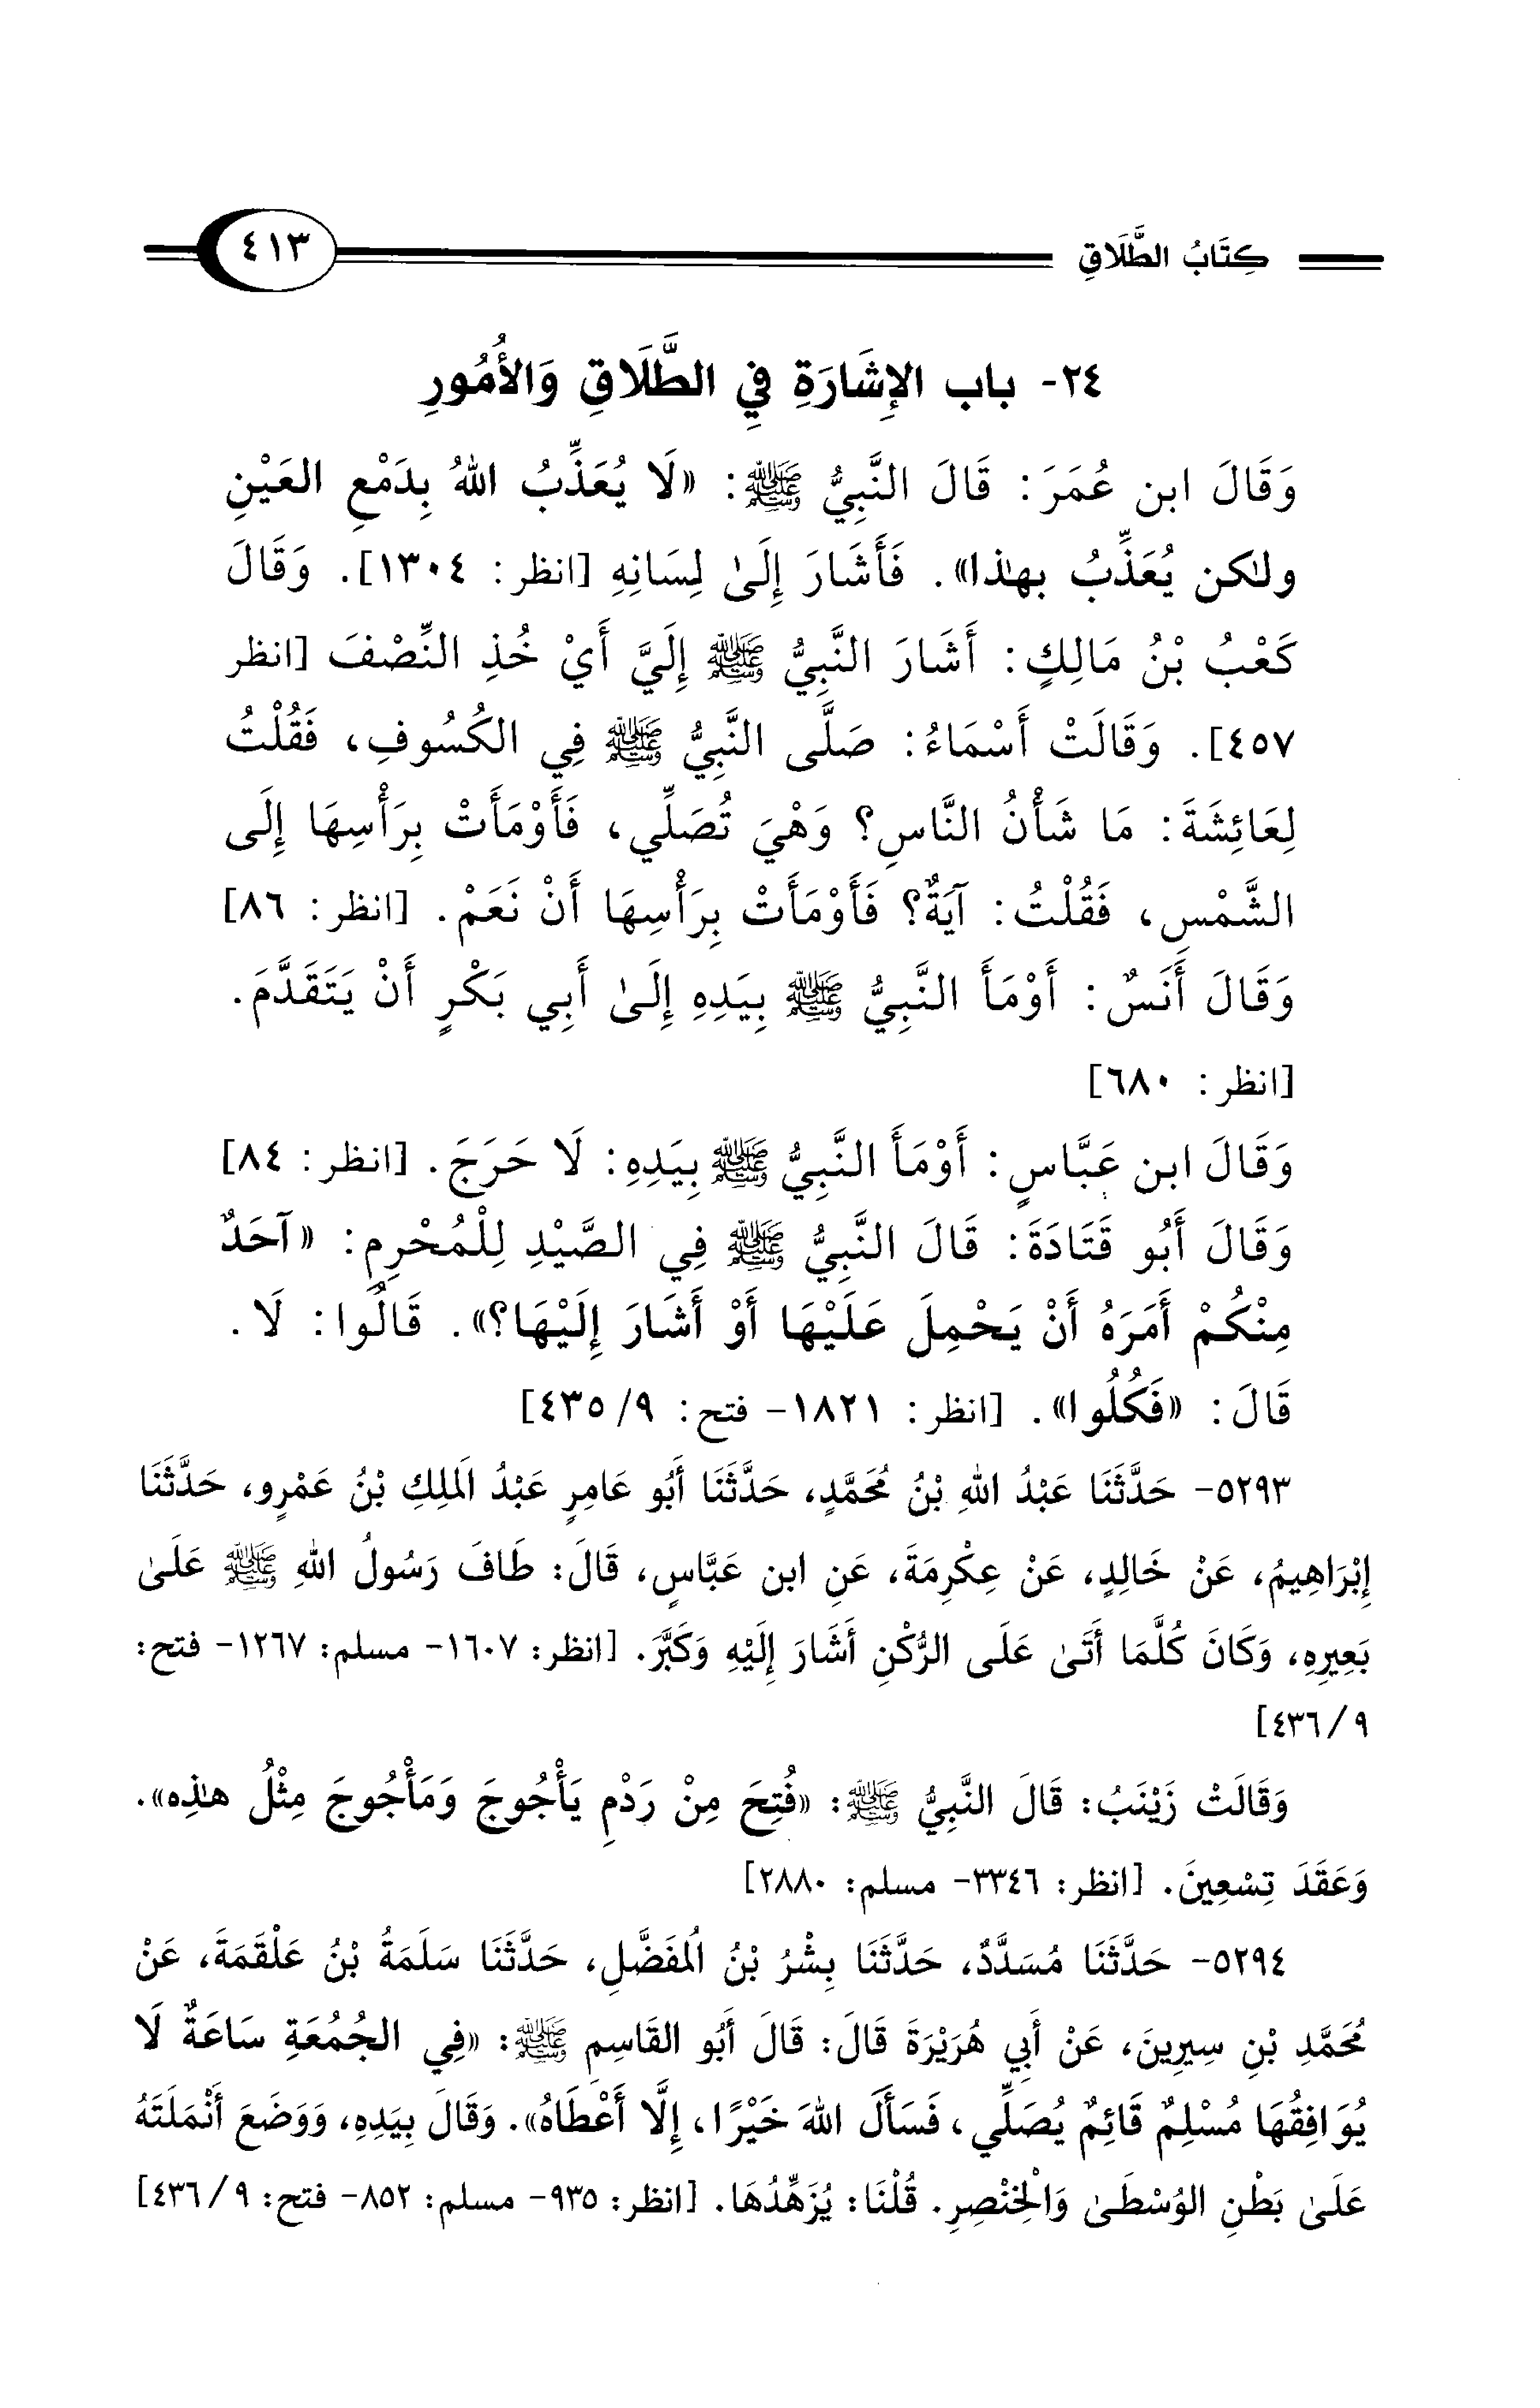 كِتَابُ الطَّلَاقِ ٤١٣
٢٤- باب الإِشَارَةِ فِي الطَّلَاقِ وَالأُمُورِ
وَقَالَ ابن عُمَرَ: قَالَ النَّبِيُّ ﷺ: «لَا يُعَذِّبُ اللهُ بِدَمْعِ العَيْنِ
ولٰكن يُعَذِّبُ بهٰذا». فَأَشَارَ إِلَىٰ لِسَانِهِ [انظر: ١٣٠٤]. وَقَالَ
كَعْبُ بْنُ مَالِكٍ: أَشَارَ النَّبِيُّ ﷺ إِلَيَّ أَيْ خُذِ النِّصْفَ [انظر
٤٥٧]. وَقَالَتْ أَسْمَاءُ: صَلَّى النَّبِيُّ ﷺ فِي الكُسُوفِ، فَقُلْتُ
لِعَائِشَةَ: مَا شَأْنُ النَّاسِ؟ وَهْيَ تُصَلِّي، فَأَوْمَأَتْ بِرَأْسِهَا إِلَى
الشَّمْسِ، فَقُلْتُ: آيَةٌ؟ فَأَوْمَأَتْ بِرَأْسِهَا أَنْ نَعَمْ. [انظر: ٨٦]
وَقَالَ أَنَسٌ: أَوْمَأَ النَّبِيُّ ﷺ بِيَدِهِ إِلَىٰ أَبِي بَكْرٍ أَنْ يَتَقَدَّمَ.
[انظر: ٦٨٠]
وَقَالَ ابن عَبَّاسٍ: أَوْمَأَ النَّبِيُّ ﷺ بِيَدِهِ: لَا حَرَجَ. [انظر: ٨٤]
وَقَالَ أَبُو قَتَادَةَ: قَالَ النَّبِيُّ ﷺ فِي الصَّيْدِ لِلْمُحْرِمِ: «آحَدٌ
مِنْكُمْ أَمَرَهُ أَنْ يَحْمِلَ عَلَيْهَا أَوْ أَشَارَ إِلَيْهَا؟». قَالُوا: لَا.
قَالَ: «فَكُلُوا». [انظر: ١٨٢١- فتح: ٩/ ٤٣٥]
٥٢٩٣- حَدَّثَنَا عَبْدُ اللهِ بْنُ مُحَمَّدٍ، حَدَّثَنَا أَبُو عَامِرٍ عَبْدُ الَملِكِ بْنُ عَمْرٍو، حَدَّثَنَا
إِبْرَاهِيمُ، عَنْ خَالِدٍ، عَنْ عِكْرِمَةَ، عَنِ ابن عَبَّاسٍ، قَالَ: طَافَ رَسُولُ اللهِ ﷺ عَلَىٰ
بَعِيرِهِ، وَكَانَ كُلَّمَا أَتَىٰ عَلَى الرُّكْنِ أَشَارَ إِلَيْهِ وَكَبَّرَ. [انظر: ١٦٠٧- مسلم: ١٢٦٧- فتح:
٩/ ٤٣٦]
وَقَالَتْ زَيْنَبُ: قَالَ النَّبِيُّ ﷺ: «فُتِحَ مِنْ رَدْمِ يَأْجُوجَ وَمَأْجُوجَ مِثْلُ هٰذِه».
وَعَقَدَ تِسْعِينَ. [انظر: ٣٣٤٦- مسلم: ٢٨٨٠]
٥٢٩٤- حَدَّثَنَا مُسَدَّدٌ، حَدَّثَنَا بِشْرُ بْنُ الُمفَضَّلِ، حَدَّثَنَا سَلَمَةُ بْنُ عَلْقَمَةَ، عَنْ
مُحَمَّدِ بْنِ سِيرِينَ، عَنْ أَبِي هُرَيْرَةَ قَالَ: قَالَ أَبُو القَاسِمِ ﷺ: «فِي الجُمُعَةِ سَاعَةٌ لَا
يُوَافِقُهَا مُسْلِمٌ قَائِمٌ يُصَلِّي، فَسَأَلَ اللهَ خَيْرًا، إِلَّا أَعْطَاهُ». وَقَالَ بِيَدِهِ، وَوَضَعَ أَنْمَلَتَهُ
عَلَىٰ بَطْنِ الوُسْطَىٰ وَالْخِنْصِرِ. قُلْنَا: يُزَهِّدُهَا. [انظر: ٩٣٥- مسلم: ٨٥٢- فتح: ٩/ ٤٣٦]